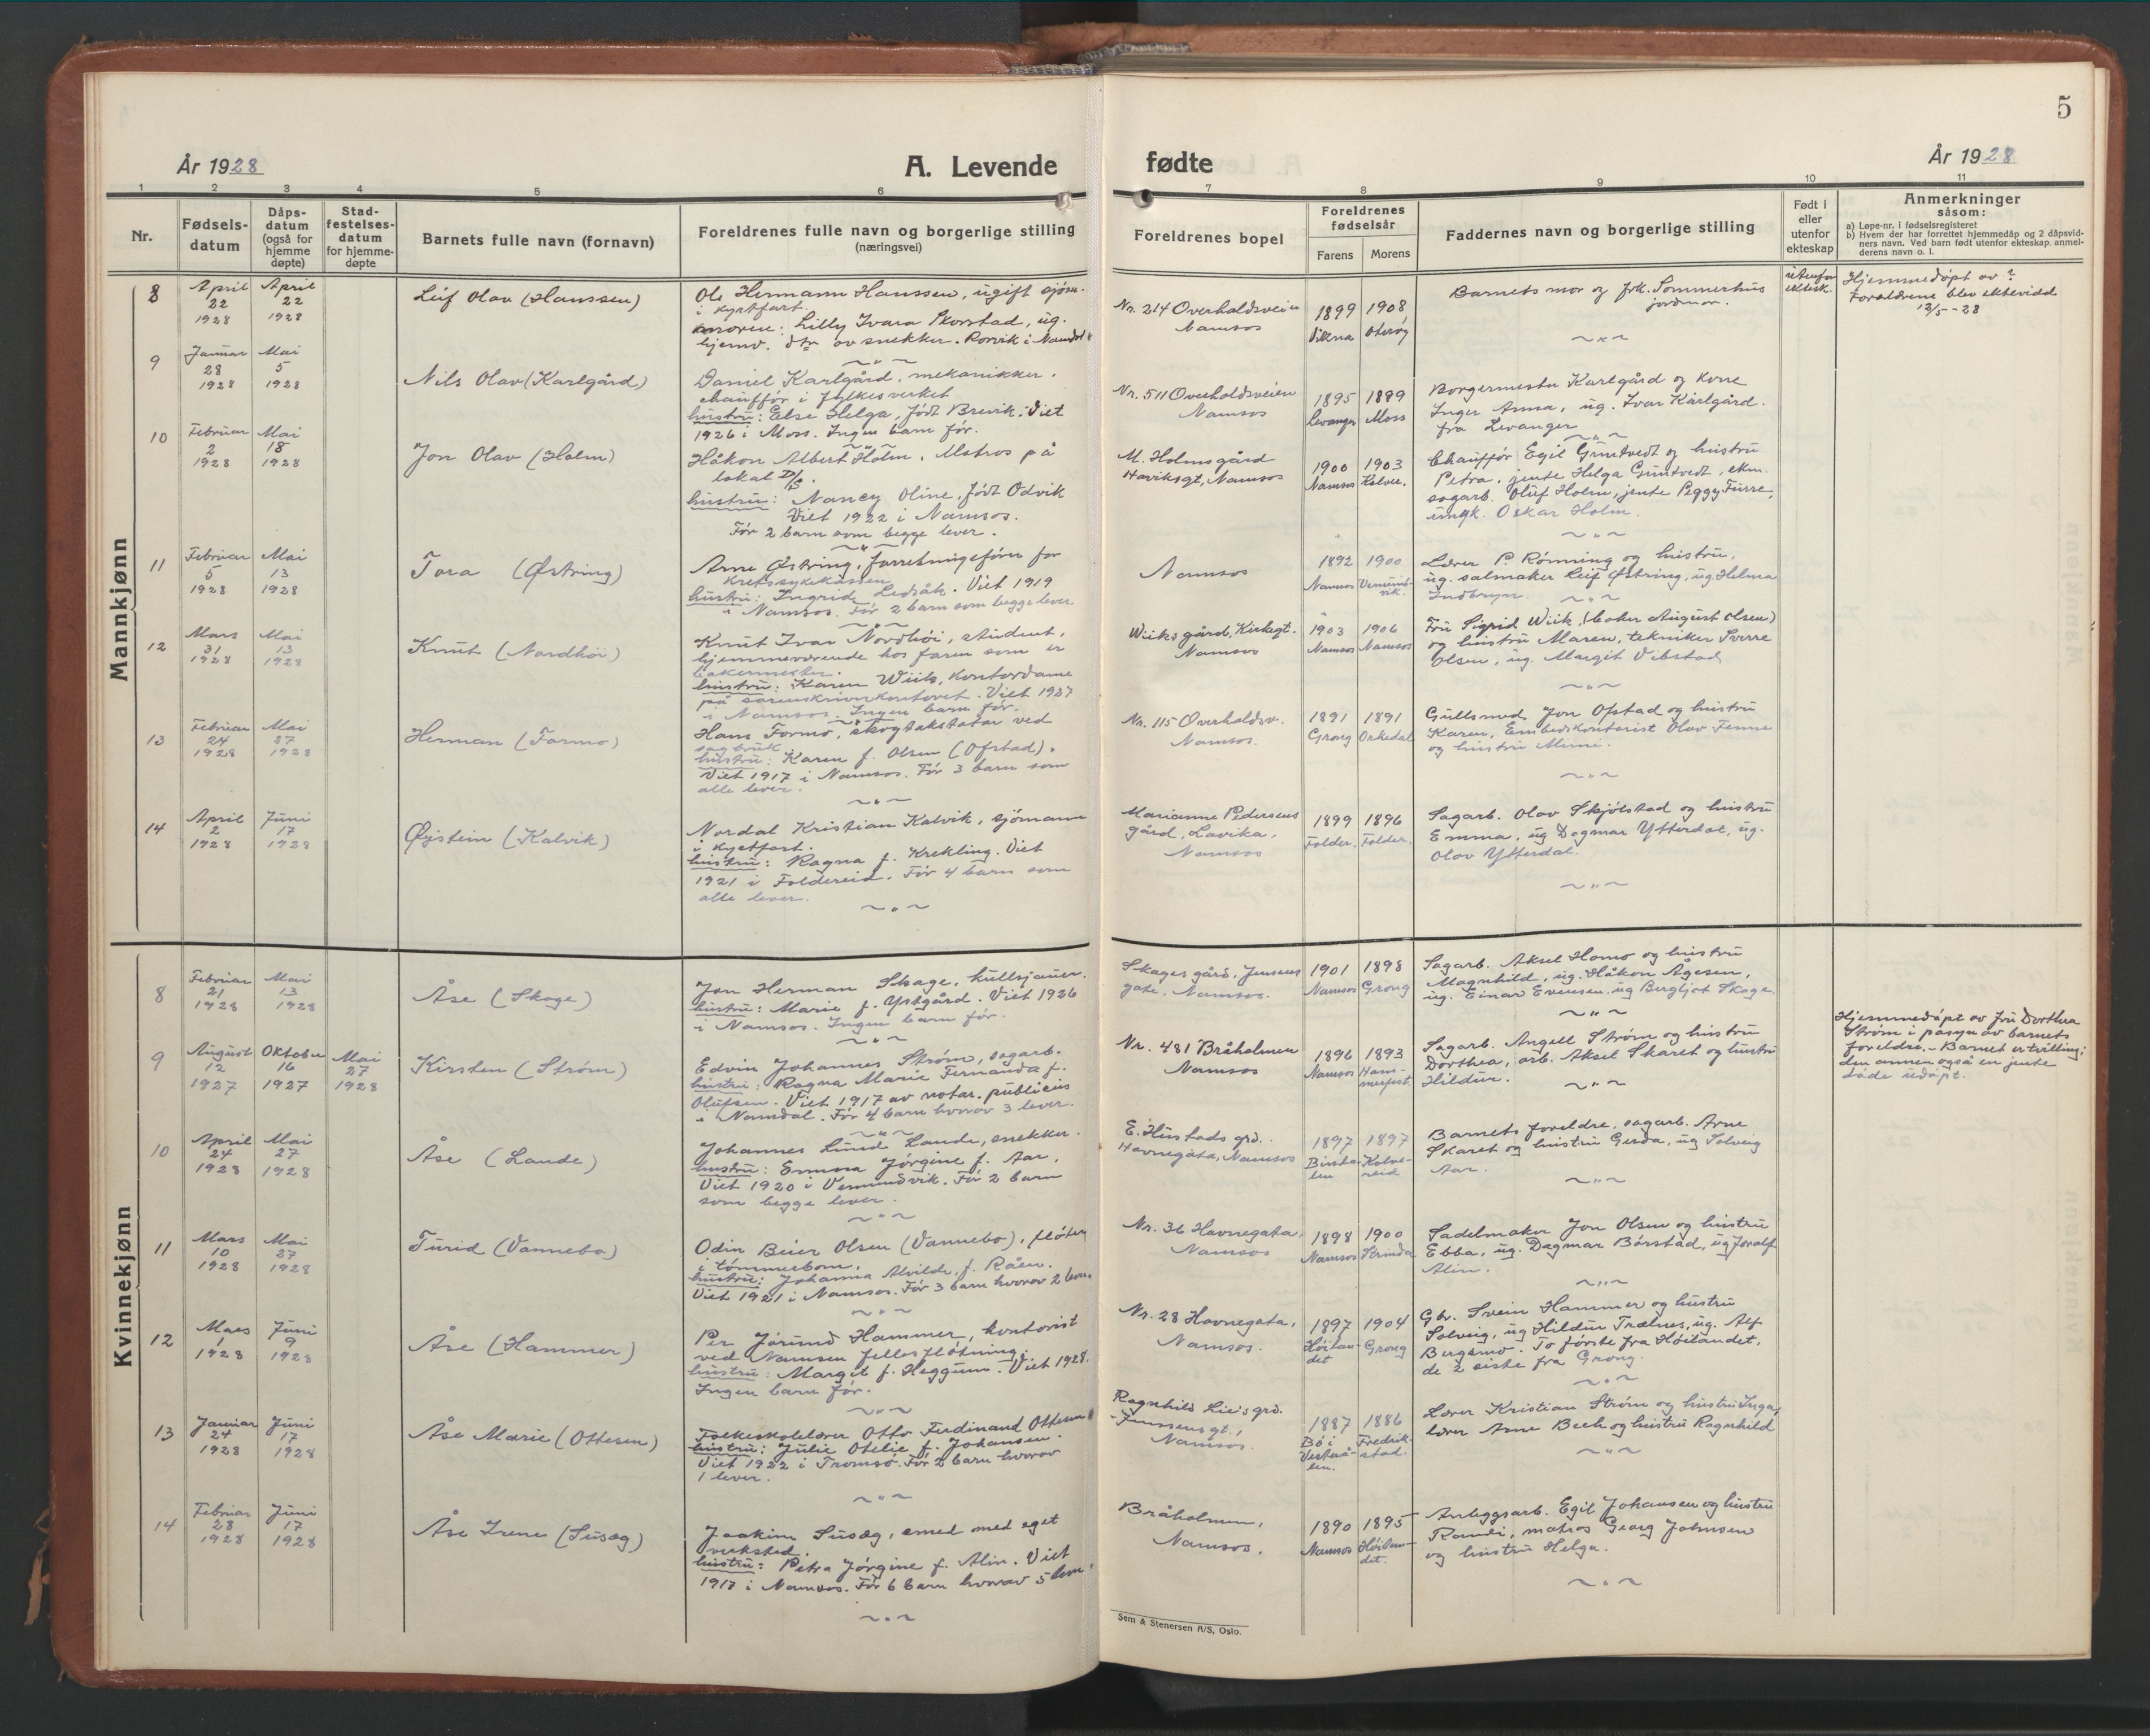 5
År 1928
A. Levende
fødte
År 1928
1 2 3 4 5 6 7 8 9 10 11
Nr.
Fødsels-
datum
Dåps-
datum
(også for
hjemme
døpte)
Stad-
festelses-
datum
for hjemme-
døpte
Barnets fulle navn (fornavn)
Foreldrenes fulle navn og borgerlige stilling
(næringsvei)
Foreldrenes bopel
Foreldrenes
fødselsår
Farens Morens
Faddernes navn og borgerlige stilling
Født i
eller
utenfor
ekteskap
Anmerkninger
såsom:
a) Løpe-nr. i fødselsregisteret
b) Hvem der har forrettet hjemmedåp og 2 dåpsvid-
ners navn. Ved barn født utenfor ekteskap, anmel-
derens navn o. l.
Mannkjønn
8
April
22
1928
April
22
1928
Leif Olav (Hanssen)
Ole Hermann Hanssen, ugift sjøm.
i kystfart.
moren: Lilly Ivara Skorstad, ug.
hjemv. dtr av snekker. Rørvik i
Nr. 214 Overhaldsveien
Namsos
1899 1908
Vikna Otterøy
Barnets mor og frk. Sommerhus
jordmor.
utenfor
ektesk.
Hjemmedøpt av ?
Foreldrene blev ektevidd
12/5-28
9
Januar
28
1928
Mai
5
1928
Nils Olav (Karlgård)
Daniel Karlgård, mekanikker,
chauffør i fylkesverket
hustru: Else Helga, født Brevik. Viet
1926 i Moss. Ingen barn før.
Nr. 511 Overhaldsveien
Namsos
1895 1899
Levanger Moss
Borgermester Karlgård og kone
Inger Anna, ug. Ivar Karlgård.
fra Levanger
10
Februar
2
1928
Mai
18
1928
Jon Olav (Holm)
Håkon Albert Holm. Matros på
lokal D/S.
hustru: Nancy Oline, født Odvik
Viet 1922 i Namsos.
Før 2 barn som begge lever.
M. Holmsgård
Haviksgt, Namsos
1900 1903
Namsos Kolver.
Chauffør Egil Grundtvedt og hustru
Petra, jente Helga Grundtvedt, ekm.
sagarb. Oluf Holm, jente Peggy Furre,
ungk. Oskar Holm.
11
Februar
5
1928
Mai
13
1928
Tora (Østring)
Arne Østring, forretningsfører for
kretssykekassen
hustru: Ingrid Ledsåk. Viet 1919
i Namsos. Før 2 barn som begge lever.
Namsos
1892 1900
Namsos Vemund-
vik.
Lærer P. Rønning og hustru,
ug. salmaker Leif Østring, ug. Helma
Indbryn.
12
Mars
31
1928
Mai
13
1928
Knut (Nordhøi)
Knut Ivar Nordhøi, student,
hjemmeværende hos faren som er
bakermester.
hustru: Karen Wiik, kontordame
på sorenskriverkontoret. Viet 1927
i Namsos. Ingen barn før.
Wiiks gård, Kirkegt.
Namsos
1903 1906
Namsos Namsos
Fru Sigrid Wiik, (baker August Olsen)
og hustru Maren, tekniker Sverre
Olsen, ug. Margit Vibstad
13
Februar
24
1928
Mai
27
1928
Herman (Formo)
Hans Formo, skogtakstator ved
sagbruk.
hustru: Karen f. Olsen (Ofstad).
Viet 1917 i Namsos. Før 3 barn som
alle lever.
Nr. 115 Overhaldsv.
Namsos.
1891 1891
Grong Orkedal
Gullsmed Jon Ofstad og hustru
Karen, Embedskontorist Olav Fenne
og hustru Mimi.
14
April
2
1928
Juni
17
1928
Øystein (Kalvik)
Nordal Kristian Kalvik, sjömann
i kystfart.
hustru: Ragna f. Krekling. Viet
1921 i Foldereid. Før 4 barn som
alle lever.
Marianne Pedersens
gård, Lavika,
Namsos
1899 1896
Folder. Folder.
Sagarb. Olav Skjølstad og hustru
Emma, ug Dagmar Ytterdal, ug.
Olav Ytterdal.
Kvinnekjønn
8
Februar
21
1928
Mai
13
1928
Åse (Skage)
Jon Herman Skage, kullsjauer.
hustru: Marie f. Ystgård. Viet 1926
i Namsos. Ingen barn før.
Skages gård, Jensens
gate, Namsos.
1901 1898
Namsos Grong
Sagarb. Aksel Homo og hustru
Magnhild, ug. Håkon Ågesen,
ug. Einar Evensen, ug Bergljot Skage.
9
August
12
1927
Oktober
16
1927
Mai
27
1928
Kirsten (Strøm)
Edvin Johannes Strøm, sagarb.
hustru: Ragna Marie Fernanda f.
Olufsen. Viet 1917 av notar. publicus
i Namdal. Før 4 barn hvorav 3 lever.
Nr. 481 Bråholmen
Namsos
1896 1893
Namsos Ham-
merfest.
Sagarb. Angell Strøm og hustru
Dorthea, arb. Aksel Skaret og hustru
Hildur.
Hjemmedøpt av fru Dorthea
Strøm i påsyn av barnets
foreldre. Barnet er tvilling;
den annen også en jente
døde udøpt.
10
April
24
1928
Mai
27
1928
Åse (Lande)
Johannes Lunde Lande, snekker.
hustru: Emma Jørgine f. Aar.
Viet 1920 i Vemundvik. Før 2 barn
som begge lever.
E. Hustads grd.
Havnegata, Namsos
1897 1897
Binda-
len
Kolve-
reid
Barnets foreldre, sagarb. Arne
Skaret og hustru Gerda, ug Solveig
Aar.
11
Mars
10
1928
Mai
27
1928
Turid (Vannebo)
Odin Beier Olsen (Vannebo), fløter
i tømmerbom.
hustru: Johanna Alvilde, f. Råen.
Viet 1921 i Namsos. Før 3 barn hvorav 2 lever.
Nr. 36 Havnegata,
Namsos
1898 1900
Namsos Strinda
Sadelmaker Jon Olsen og hustru
Ebba, ug. Dagmar Børstad, ug Joralf
Alin.
12
Mars
1
1928
Juni
9
1928
Åse (Hammer)
Per Jørund Hammer, kontorist
ved Namsen fellesfløtning.
hustru: Margit f. Heggum. Viet 1928.
Ingen barn før.
Nr. 28 Havnegata,
Namsos.
1897 1904
Høilan-
det
Grong
Gbr. Svein Hammer og hustru
Solveig, ug Hildur Trælnes, ug. Alf
Bergsmo. To første fra Høilandet,
de 2 siste fra Grong.
13
Januar
24
1928
Juni
17
1928
Åse Marie (Ottesen)
Folkeskolelærer Otto Ferdinand Ottesen
hustru: Julie Otelie f. Johansen.
Viet 1922 i Tromsø. Før 2 barn hvorav
1 lever.
Ragnhild Lie's grd.
Jenssensgt.,
Namsos.
1887 1886
Bø i
Vesterå-
len.
Fredrik-
stad.
Lærer Kristian Strøm og hustru Inga,
lærer Arne Bech og hustru Ragnhild
14
Februar
28
1928
Juni
17
1928
Åse Irene (Susæg)
Joakim Susæg, smed med eget
verksted.
hustru: Petra Jørgine f. Alin. Viet
1917 i Namsos. Før 6 barn hvorav 5 lever.
Bråholmen,
Namsos.
1890 1895
Namsos Høilan-
det.
Anleggsarb. Egil Johansen og hustru
Randi, matros Georg Johnsen
og hustru Helga.
Sem & Stenersen A/S, Oslo.